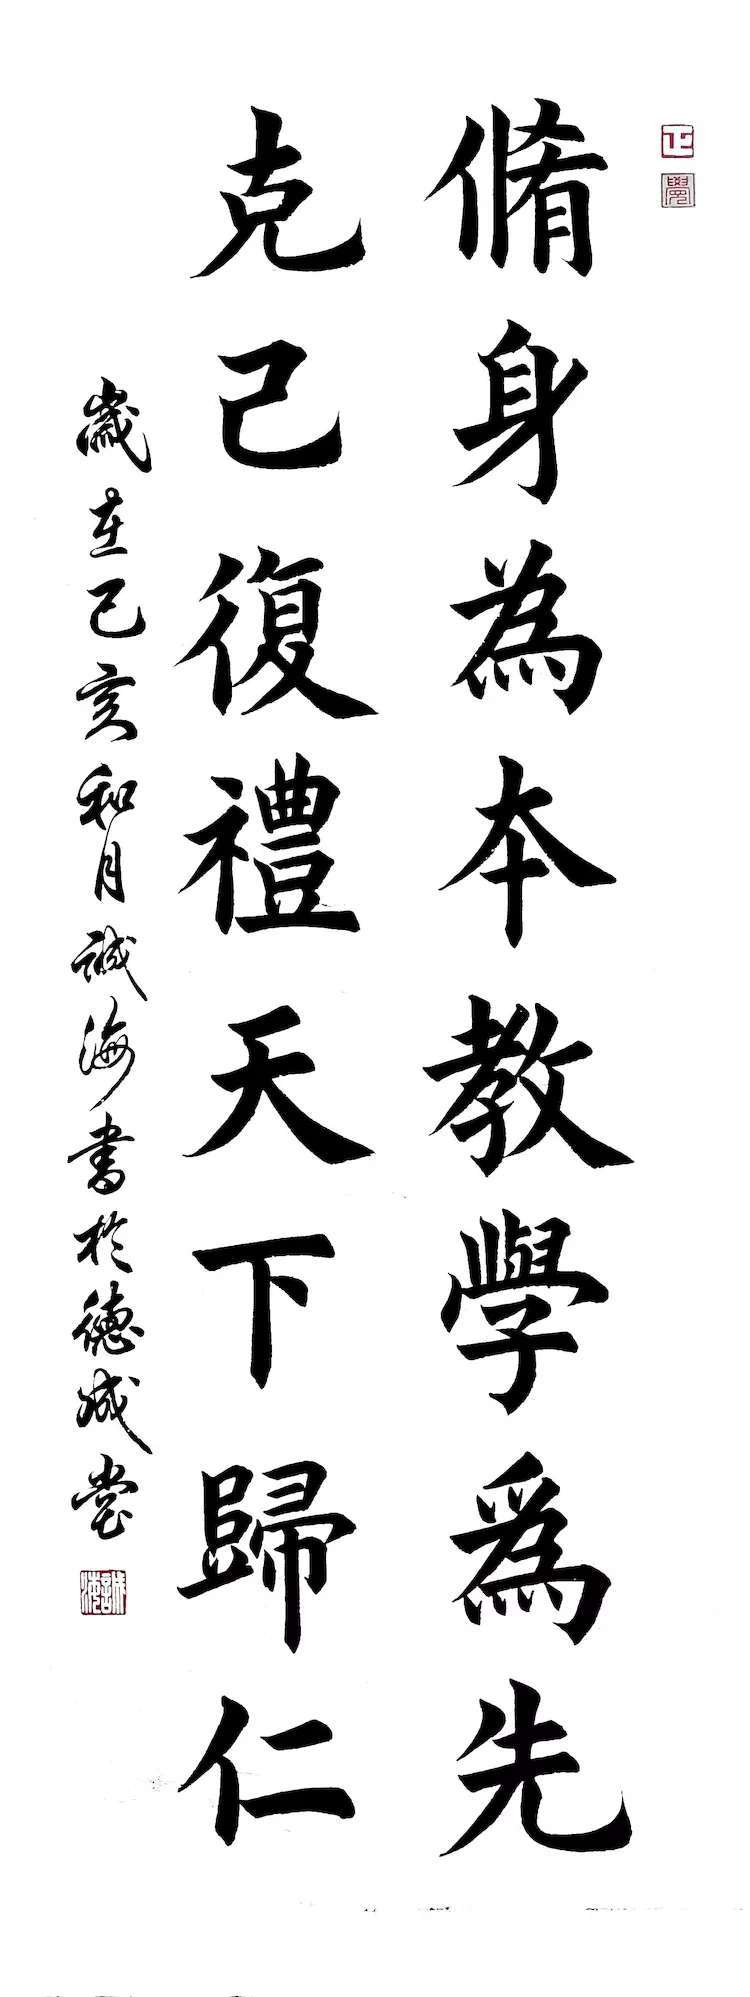 正
覺
脩身為本教學爲先
克己復禮天下歸仁
歲在己亥和月誠海書於德成堂
誠海